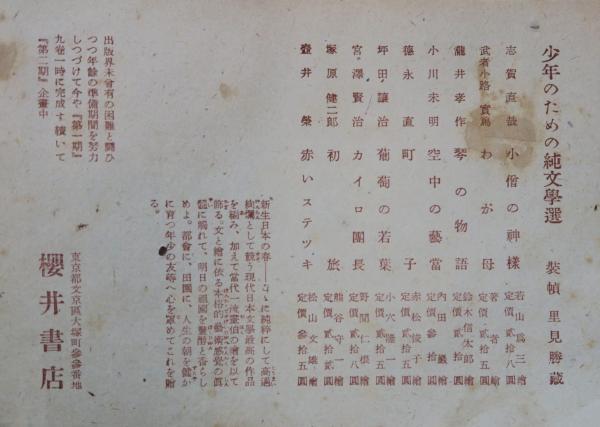 少年のための純文學選　裝幀 里見勝藏
志賀直哉 小僧の神樣 若山爲三繪 定價貳拾八圓
武者小路實篤 わが母 著者繪 定價貳拾五圓
瀧井孝作 琴の物語 鈴木信太郎繪 定價貳拾五圓
小川未明 空中の藝當 内田巖繪 定價參拾五圓
德永直 町子 赤松俊子繪 定價貳拾五圓
坪田讓治 葡萄の若葉 小穴隆一繪 定價貳拾五圓
宮澤賢治 カイロ團長 野間仁根繪 定價貳拾八圓
塚原健二郎 初旅 熊谷守一繪 定價貳拾圓
壺井榮 赤いステッキ 松山文雄繪 定價參拾五圓
新生日本の春――に純粹にして高邁
絢爛として競う現代日本文學最高の作品
を編み、加えて當代一流畫伯の繪を以て
飾る。文と繪に依る本格的藝術感覺の眞
髓に觸れて、明日の祖國を馥郁と香らし
めよ。都會に、田園に、人生の朝を健か
に育つ年少の友等へ心を罩めてこれを贈
る。
出版界未曾有の困難と鬪ひ
つつ年餘の準備期間を努力
しつづけて今や『第一期』
九卷一時に完成す 續いて
『第二期』企畫中
東京都文京區大塚町參參番地
櫻井書店